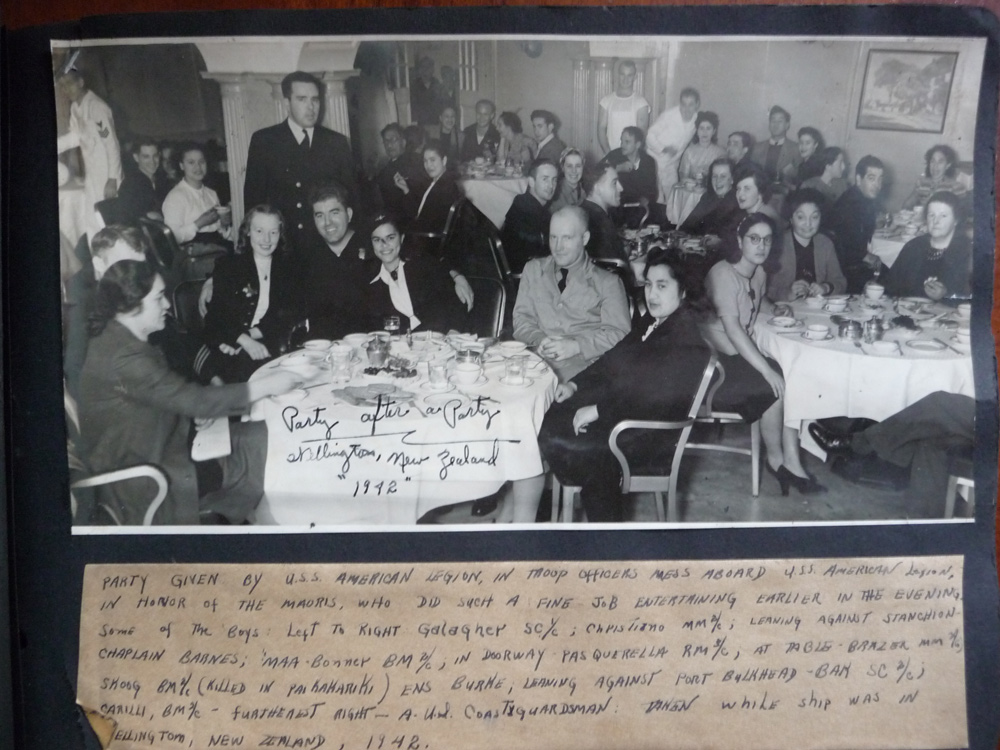 Party after a Party
Wellington, New Zealand
"1942"
PARTY GIVEN BY U.S.S. AMERICAN LEGION, IN TROOP OFFICERS MESS ABOARD U.S.S. AMERICAN LEGION,
IN HONOR OF THE MAURIS, WHO DID SUCH A FINE JOB ENTERTAINING EARLIER IN THE EVENING.
SOME OF THE BOYS: LEFT TO RIGHT GALAGHER SC/c; CHRISTIANO MM 2/c; LEANING AGAINST STANCHION-
CHAPLAIN BARNES; MAA-BONNER BM 2/c, IN DOORWAY-PASQUERELLA RM 3/c; AT TABLE-BRAZER MM 2/c,
SKOOG BM 2/c (KILLED IN PAIKAHARIKI) ENS BURKE; LEANING AGAINST PORT BULKHEAD-BAK SC 2/c;
CARILLI, BM 2/c - FURTHEREST RIGHT - A. U.S. COASTGUARDSMAN: TAKEN WHILE SHIP WAS IN
ELLINGTON, NEW ZEALAND, 1942.